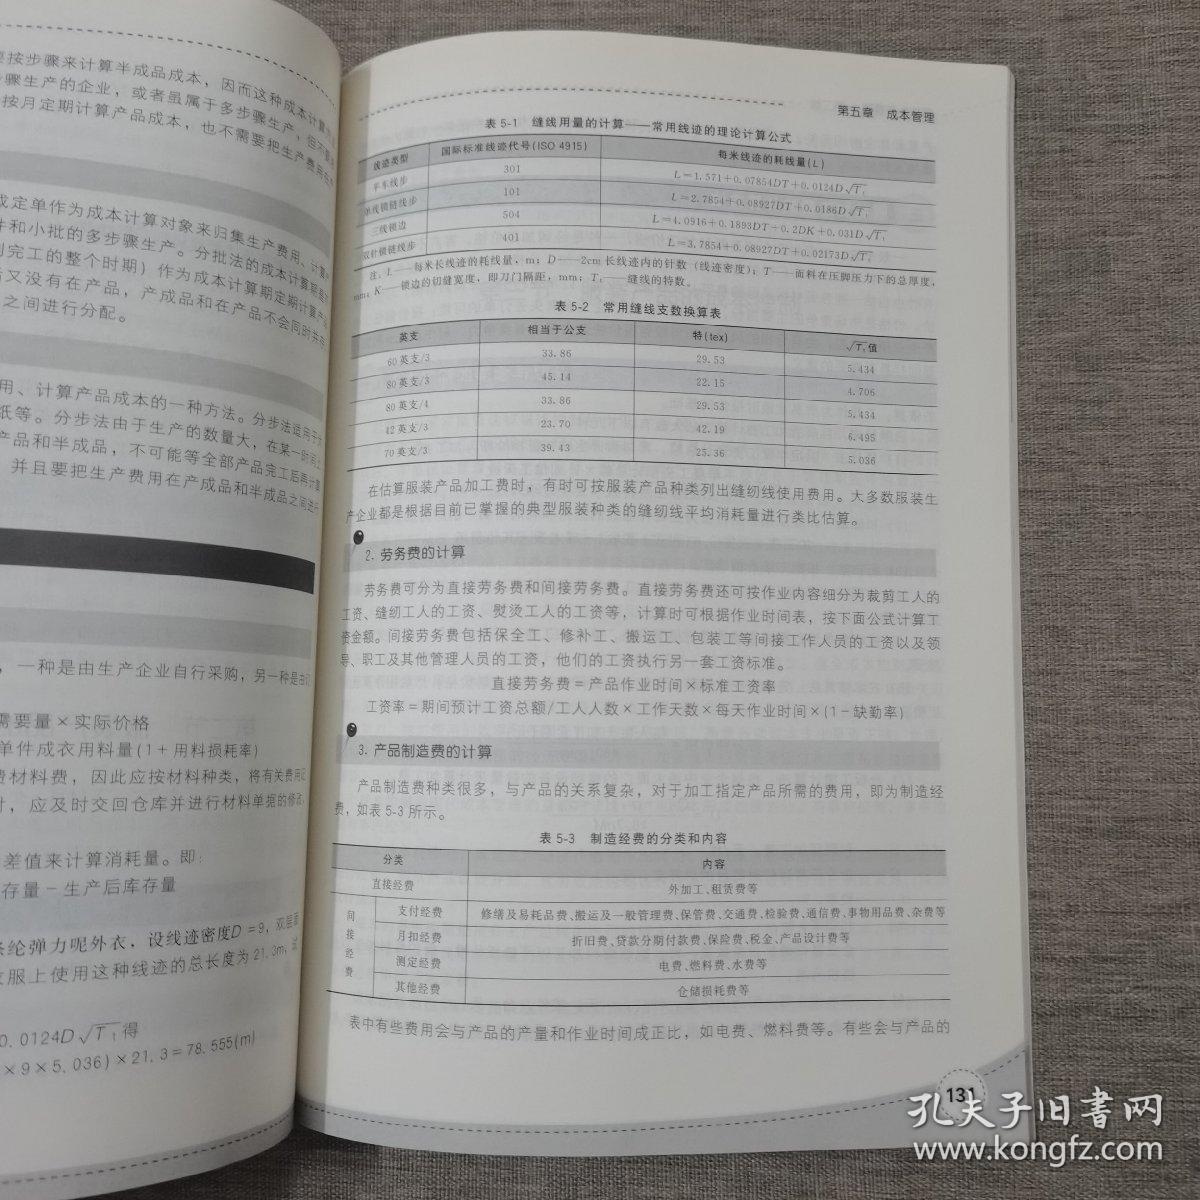 要按步骤来计算半成品成本，因而这种成本计算
步骤生产的企业，或者虽属于多步骤生产，但不要
按月定期计算产品成本，也不需要把生产费用在
成定单作为成本计算对象来归集生产费用、计算
件和小批的多步骤生产。分批法的成本计算期是
到完工的整个时期）作为成本计算期定期计算产
后又没有在产品，产成品和在产品不会同时并存
之间进行分配。
用、计算产品成本的一种方法。分步法适用于
纸等。分步法由于生产的数量大，在某一时间上
产品和半成品，不可能等全部产品完工后再计算
并且要把生产费用在产成品和半成品之间进行
，一种是由生产企业自行采购，另一种是由
需要量×实际价格
单件成衣用料量(1＋用料损耗率)
费材料费，因此应按材料种类，将有关费用记
，应及时交回仓库并进行材料单据的修改，
差值来计算消耗量。即：
存量－生产后库存量
涤纶弹力呢外衣，设线迹密度D＝9，双层面
衣服上使用这种线迹的总长度为21.3m，试
0.0124D√T₁得
×9×5.036)×21.3＝78.555(m)
第五章 成本管理
表 5-1 缝线用量的计算——常用线迹的理论计算公式
线迹类型 国际标准线迹代号(ISO 4915) 每米线迹的耗线量(L)
平车线步 301 L=1.571+0.07854DT+0.0124D√T₁
单线锁链线步 101 L=2.7854+0.08927DT+0.0186D√T₁
三线锁边 504 L=4.0916+0.1893DT+0.2DK+0.031D√T₁
双针锁链线步 401 L=3.7854+0.08927DT+0.02173D√T₁
注：L——每米长线迹的耗线量，m；D——2cm长线迹内的针数（线迹密度）；T——面料在压脚压力下的总厚度，
mm；K——锁边的切缝宽度，即刀门隔距，mm；T₁——缝线的特数。
表 5-2 常用缝线支数换算表
英支 相当于公支 特(tex) √T₁值
60英支/3 33.86 29.53 5.434
80英支/3 45.14 22.15 4.706
80英支/4 33.86 29.53 5.434
42英支/3 23.70 42.19 6.495
70英支/3 39.43 25.36 5.036
在估算服装产品加工费时，有时可按服装产品种类列出缝纫线使用费用。大多数服装生
产企业都是根据目前已掌握的典型服装种类的缝纫线平均消耗量进行类比估算。
2. 劳务费的计算
劳务费可分为直接劳务费和间接劳务费。直接劳务费还可按作业内容细分为裁剪工人的
工资、缝纫工人的工资、熨烫工人的工资等，计算时可根据作业时间表，按下面公式计算工
资金额。间接劳务费包括保全工、修补工、搬运工、包装工等间接工作人员的工资以及领
导、职工及其他管理人员的工资，他们的工资执行另一套工资标准。
直接劳务费＝产品作业时间×标准工资率
工资率＝期间预计工资总额/工人人数×工作天数×每天作业时间×(1－缺勤率)
3. 产品制造费的计算
产品制造费种类很多，与产品的关系复杂，对于加工指定产品所需的费用，即为制造经
费，如表 5-3 所示。
表 5-3 制造经费的分类和内容
分类 内容
直接经费 外加工、租赁费等
间接经费 支付经费 修缮及易耗品费、搬运及一般管理费、保管费、交通费、检验费、通信费、事物用品费、杂费等
月扣经费 折旧费、贷款分期付款费、保险费、税金、产品设计费等
测定经费 电费、燃料费、水费等
其他经费 仓储损耗费等
表中有些费用会与产品的产量和作业时间成正比，如电费、燃料费等。有些会与产品的
131
孔夫子旧书网
www.kongfz.com